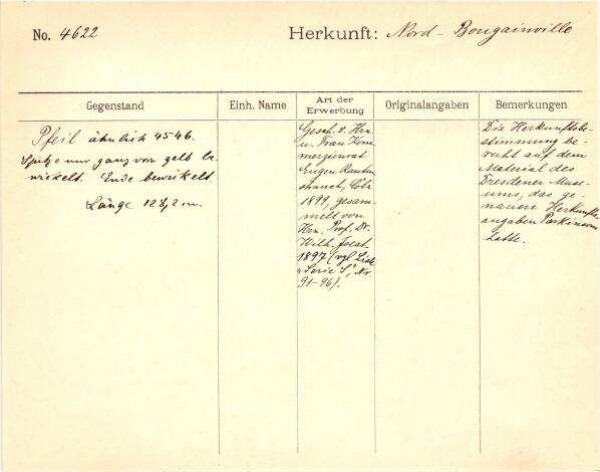 No. 4622
Herkunft: Nord-Bougainville
Gegenstand
Einh. Name
Art der Erwerbung
Originalangaben
Bemerkungen
Pfeil ähnlich 4546.
Spitze nur ganz vor gelb be-
wickelt. Ende bewickelt.
Länge 128,2 cm.
Gesch. v. Hrn.
u. Frau Kom-
merzienrat
Eugen Rauten-
strauch, Cöln
1899, gesam-
melt von
Hrn. Prof. Dr.
Wilh. Joest
1897 (vgl. Liste
"Serie S", Nr.
91-96).
Die Herkunftsbe-
stimmung be-
ruht auf dem
Material des
Dresdener Mus-
eums, das ge-
nauere Herkunfts-
angaben Parkinsons
hatte.